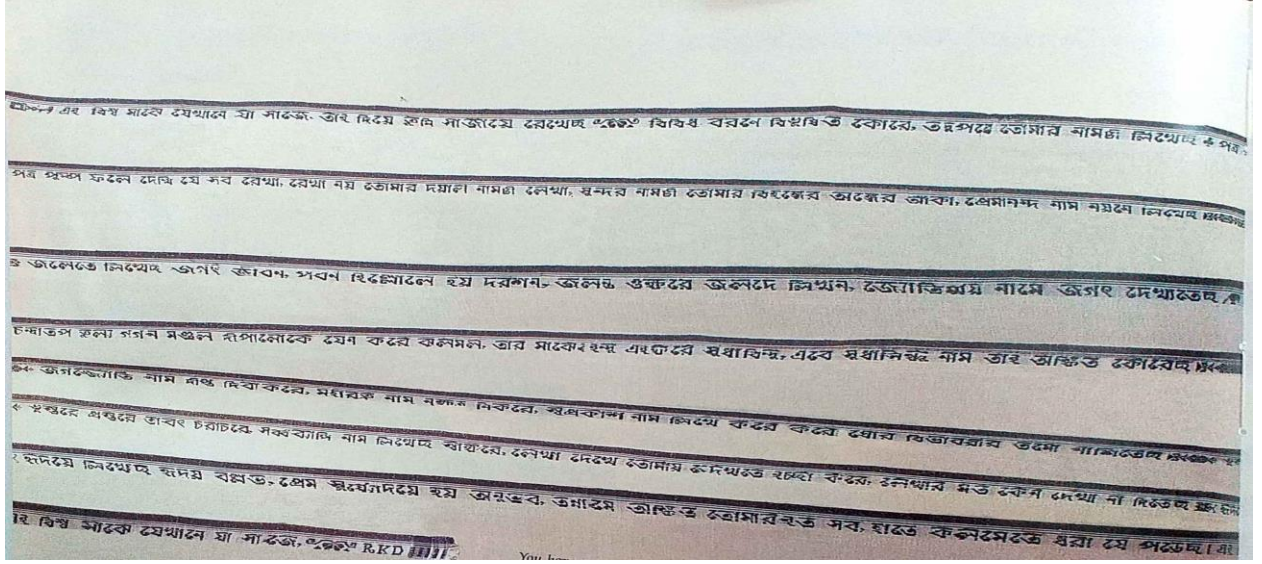 এই বিশ্ব মাঝে যেখানে যা সাজে, তাই দিয়ে তুমি সাজায়ে রেখেছ বিবিধ বরনে বিভূষিত কোরে, তদুপরে তোমার নামটী লিখেছ পত্র
পত্র পুষ্প ফলে দেখি যে সব রেখা, রেখা নয় তোমার দয়াল নামটী লেখা, সুন্দর নামটী তোমার বিহঙ্গের অঙ্গের আঁকা, প্রেমানন্দ নাম নয়নে লিখেছ
জলেতে লিখেছ জগৎ জীবন, পবন হিল্লোলে হয় দরশন, জলদ অক্ষরে জলদে লিখন, জ্যোতির্ম্ময় নামে জগৎ দেখাতেছ
চন্দ্রাতপ তুল্য গগন মণ্ডল দীপালোকে যেন করে ঝলমল, তার মাঝে ইন্দু সুধাবিন্দু, সুধাসিন্ধু নাম তাই অঙ্কিত কোরেছ
জগজ্জ্যোতি নাম দীপ্ত দিবাকরে, নাম নক্ষত্র নিকরে, সুপ্রকাশ নাম লিখে করে করে ঘোর বিভাবরীর তমো নাশিতেছ
প্রস্তরে চরাচরে সর্ব্বব্যাপী নাম লিখেছ লেখা দেখে তোমায় দেখিতে ইচ্ছা করে, লেখার মত কেন দেখা না দিতেছ
হৃদয়ে লিখেছ হৃদয় বল্লভ, প্রেম সূর্য্যোদয়ে হয় অনুভব, অঙ্কিত তোমার সব, হাতে কলমেতে ধরা যে পড়েছ। এই
এই বিশ্ব মাঝে যেখানে যা সাজে, RKD